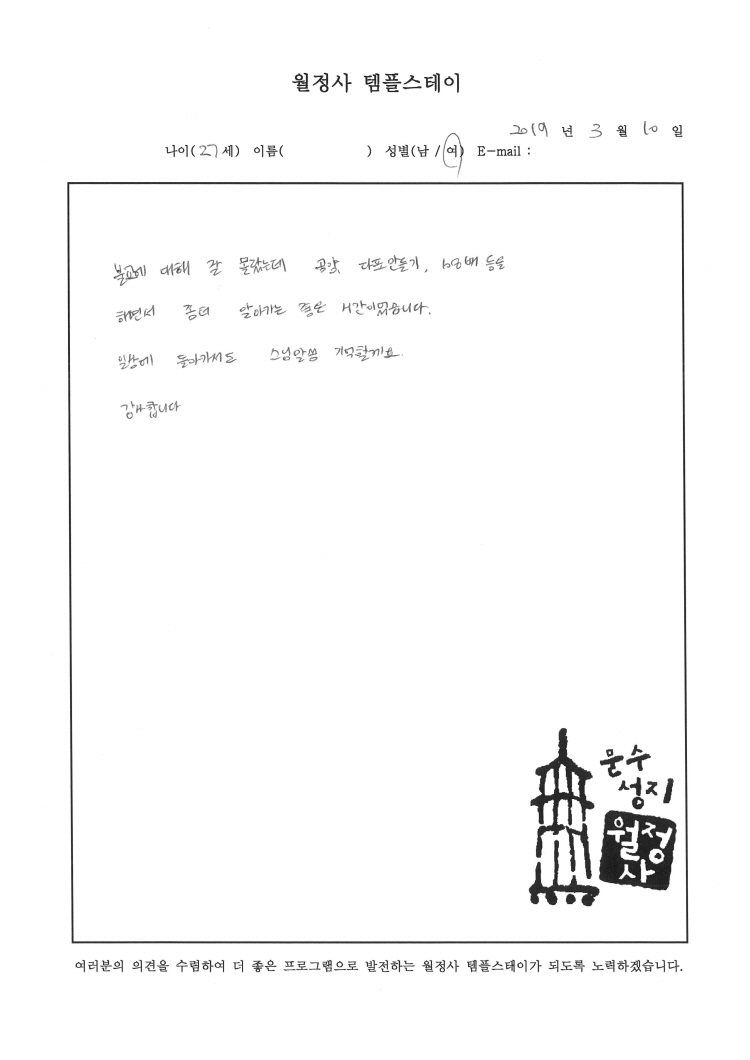 월정사 템플스테이
2019 년 3 월 10 일
나이(27세) 이름( ) 성별(남 / 여) E-mail :
불교에 대해 잘 몰랐는데 공양, 다포만들기, 108배 등을
하면서 좀더 알아가는 좋은 시간이었습니다.
일상에 돌아가서도 스님말씀 기억할게요.
감사합니다
문수
성지
월정
사
여러분의 의견을 수렴하여 더 좋은 프로그램으로 발전하는 월정사 템플스테이가 되도록 노력하겠습니다.